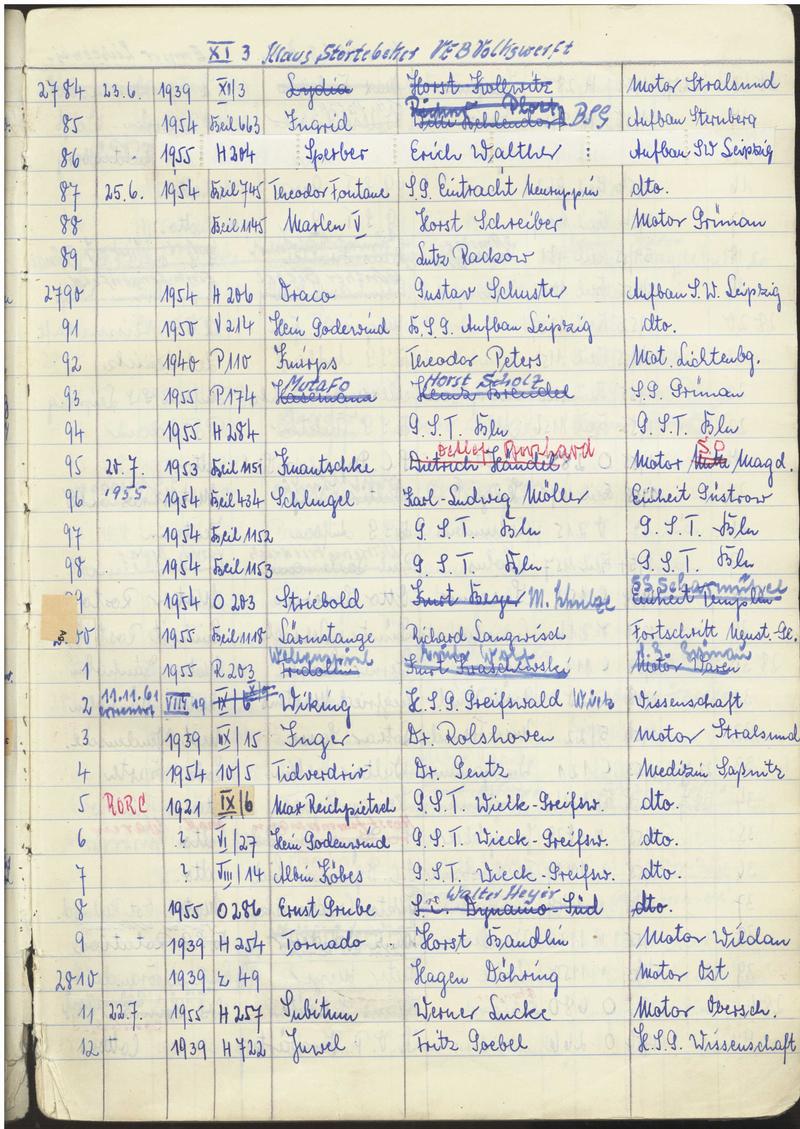 XI 3 Klaus Störtebeker VEB Volkswerft
2784 23.6. 1939 XI/3 Lydia Horst Kollwitz Motor Stralsund
85 1954 Beil 663 Ingrid BSG Aufbau Sternberg
86 1955 H 204 Sperber Erich Walther Aufbau SW Leipzig
87 25.6. 1954 Beil 745 Theodor Fontane S.G. Eintracht Neuruppin dto.
88 Beil 1145 Marlen V Horst Schreiber Motor Grünau
89 Lutz Rackow
2790 1954 H 206 Draco Gustav Schuster Aufbau S.W. Leipzig
91 1950 V 214 Hein Godewind B.S.G. Aufbau Leipzig dto.
92 1940 P 110 Knirps Theodor Peters Mot. Lichtenbg.
Mutafo Horst Scholz
93 1955 P 174 S.G. Grünau
94 1955 H 284 G.S.T. Bln G.S.T. Bln
95 20.7. 1953 Beil 1151 Knautschke Dietrich Händel Motor Magd.
96 1955 1954 Beil 434 Schlingel Karl-Ludwig Möller Einheit Güstrow
97 1954 Beil 1152 G.S.T. Bln G.S.T. Bln
98 1954 Beil 1153 G.S.T. Bln. G.S.T. Bln
SG Scharmützel
99 1954 O 203 Striebold M. Schulze Einheit Templin
00 1955 Beil 1118 Lärmstange Richard Langwisch Fortschritt Neust.-Gl.
1 1955 R 203 Fridolin Kurt Kraschewski Motor Waren
2 11.11.61 VIII 19 IX/6 Wiking H.S.G. Greifswald Wissenschaft
3 1939 IX/15 Inger Dr. Rolshoven Motor Stralsund
4 1954 10/5 Tidverdriv Dr. Gentz Medizin Saßnitz
5 RORC 1921 IX/6 Max Reichpietsch G.S.T. Wieck-Greifsw. dto.
6 ? VI/27 Hein Godenwind G.S.T. Wieck-Greifsw. dto.
7 ? VIII/14 Albin Köbes G.S.T. Wieck-Greifsw. dto.
Walter Heyer
8 1955 O 286 Ernst Grube Dynamo-Süd dto.
9 1939 H 254 Tornado Horst Bandlin Motor Wildau
2810 1939 Z 49 Hagen Döhring Motor Ost
11 22.7. 1955 H 257 Subitum Werner Lucke Motor Obersch.
12 1939 H 722 Juwel Fritz Goebel H.S.G. Wissenschaft